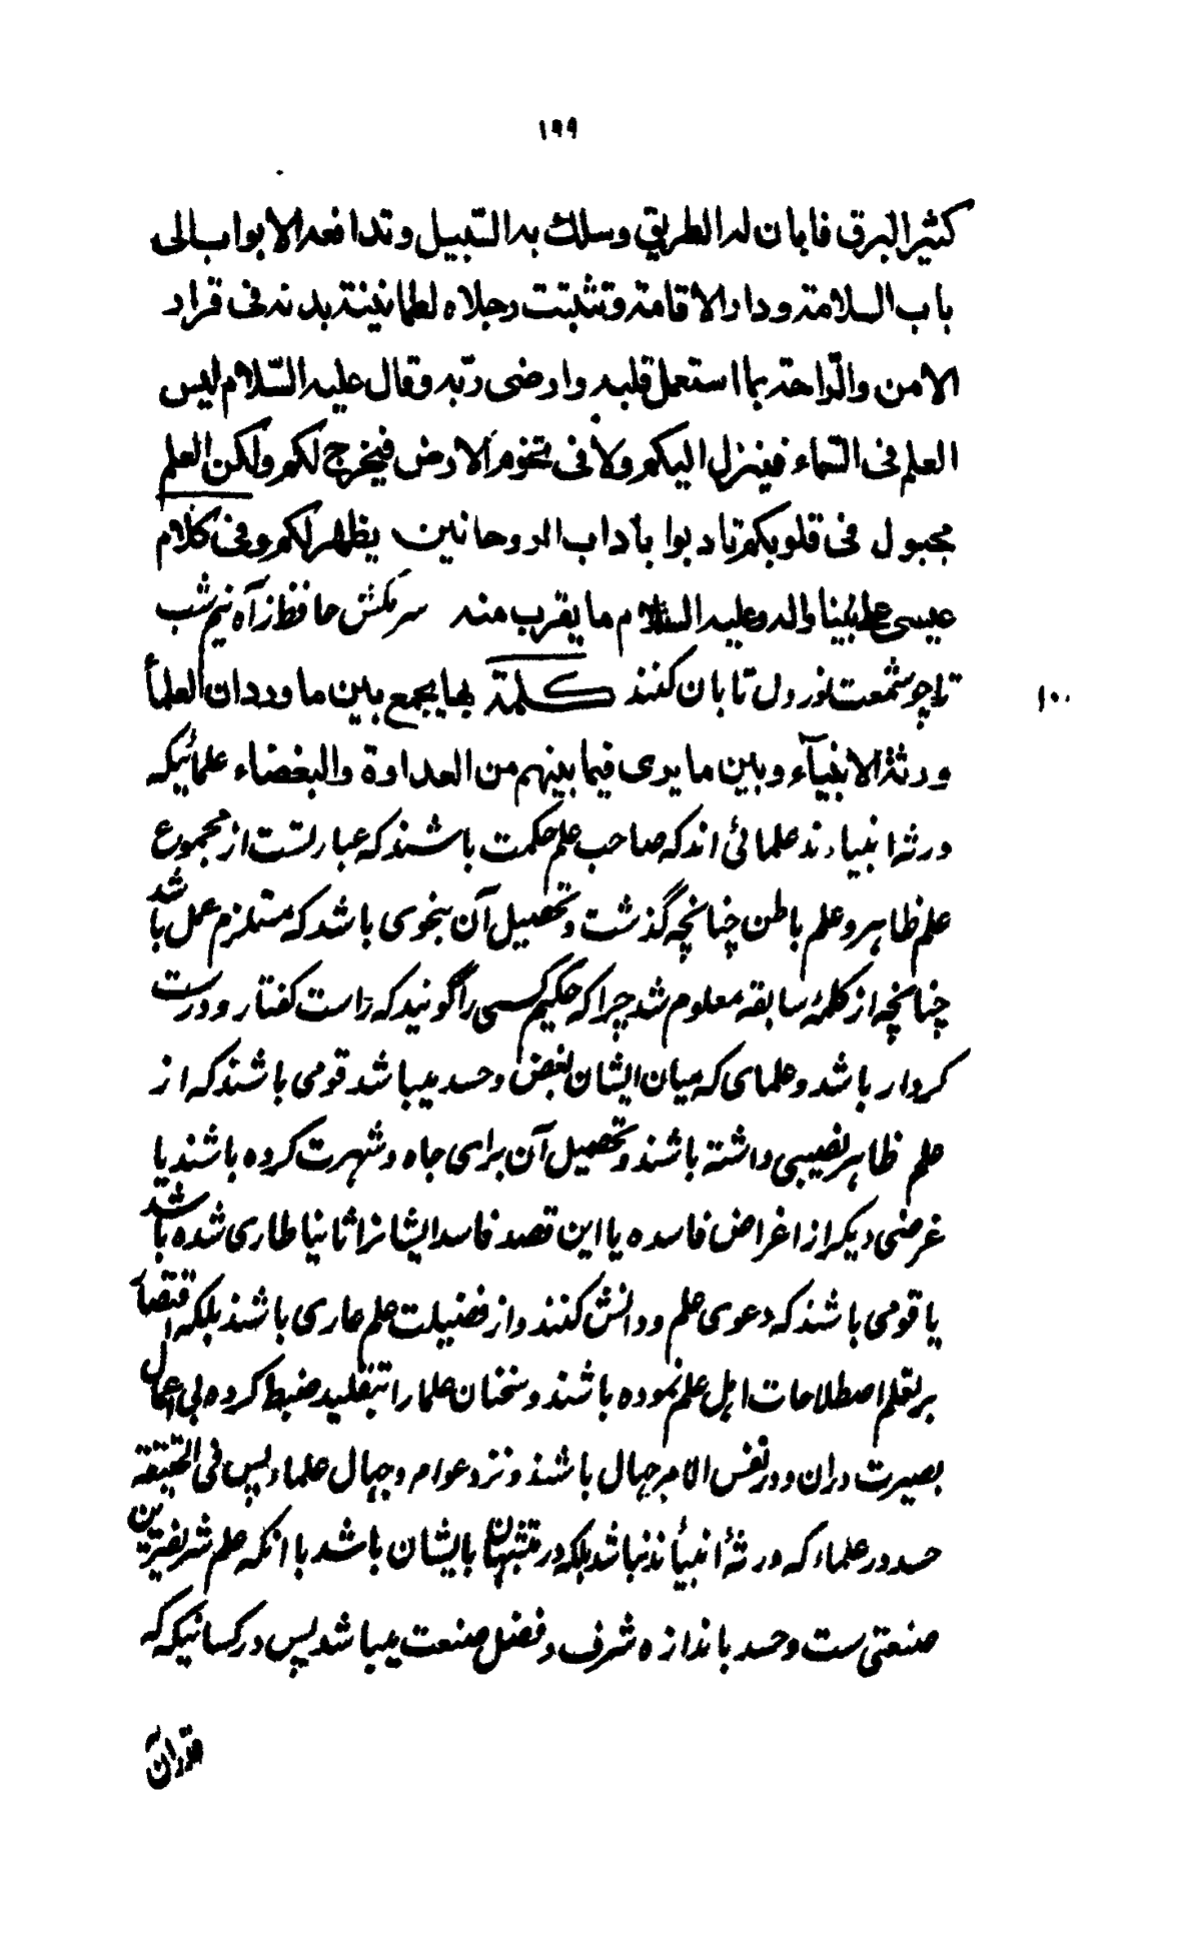 ۱۹۹
کثیر البرق فابان له الطریق وسلك به السّبیل وتدافعه الابواب الی
باب السلامة ودار الاقامة وتثبتت رجلاه لطمانینة بدنه فی قرار
الامن والرّاحة بما استعمل قلبه وارضی ربّه وقال علیه السّلام لیس
العلم فی السّماء فینزل الیکم ولا فی تخوم الارض فیخرج لکم ولکن العلم
مجبول فی قلوبکم تادبوا بأداب الروحانین یظهر لکم وفی کلام
عیسی علی نبینا واله وعلیه السّلام ما یقرب منه سرمکش حافظ ز آه نیم شب
تا چو شمعت نور دل تابان کنند کلمة بها یجمع بین ما ورد ان العلمأ
۱۰۰
ورثة الانبیآء وبین ما یری فیما بینهم من العداوة والبغضاء علمائیکه
ورثه انبیاءند علمائی اند که صاحب علم حکمت باشند که عبارتست از مجموع
علم ظاهر و علم باطن چنانچه گذشت و تحصیل آن بنحوی باشد که مستلزم عمل باشد
چنانچه از کلمهٔ سابقه معلوم شد چرا که حکیم کسی را گویند که راست گفتار و درست
کردار باشد و علمای که میان ایشان بغض و حسد میباشد قومی باشند که از
علم ظاهر نصیبی داشته باشند و تحصیل آن برای جاه و شهرت کرده باشند یا
غرضی دیکر از اغراض فاسده یا این قصد فاسد ایشانرا ثانیا طاری شده باشد
یا قومی باشند که دعوی علم و دانش کنند و از فضیلت علم عاری باشند بلکه اقتصار
بر تعلم اصطلاحات اهل علم نموده باشند و سخنان علما را بتقلید ضبط کرده بی اعمال
بصیرت دران و در نفس الامر جهال باشند و نزد عوام و جهال علماء پس فی الحقیقه
حسد در علماء که ورثهٔ انبیأند نباشد بلکه در متشبهان بایشان باشد با انکه علم شریفترین
صنعتی ست و حسد باندازه شرف و فضل صنعت میباشد پس در کسانیکه که